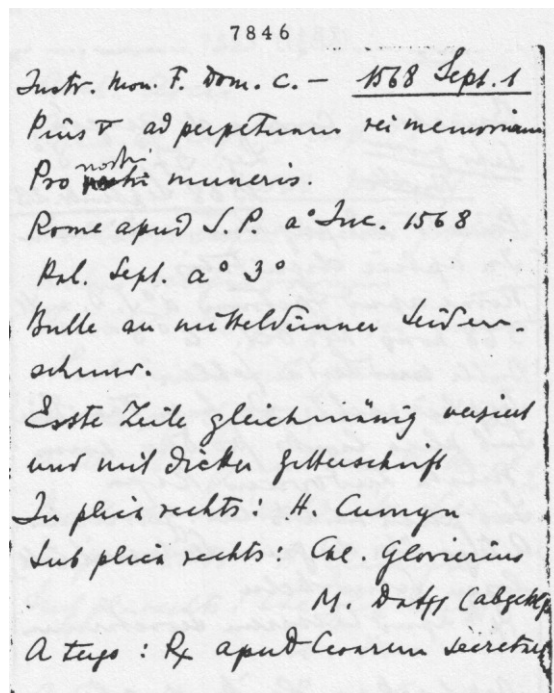 7846
Instr. Mon. F. Dom. C. – 1568 Sept. 1
Pius V ad perpetuam rei memoriam
Pro nostri muneris.
Rome apud S. P. a° Inc. 1568
Kal. Sept. a° 3°
Bulle an mitteldünner Seiden-
schnur.
Erste Zeile gleichmässig verziert
und mit dicker Gitterschrift
In plica rechts: H. Cumyn
Sub plica rechts: Cae. Glorierius
M. Datt (abgek
A tergo: Rx apud Cesarem secretar